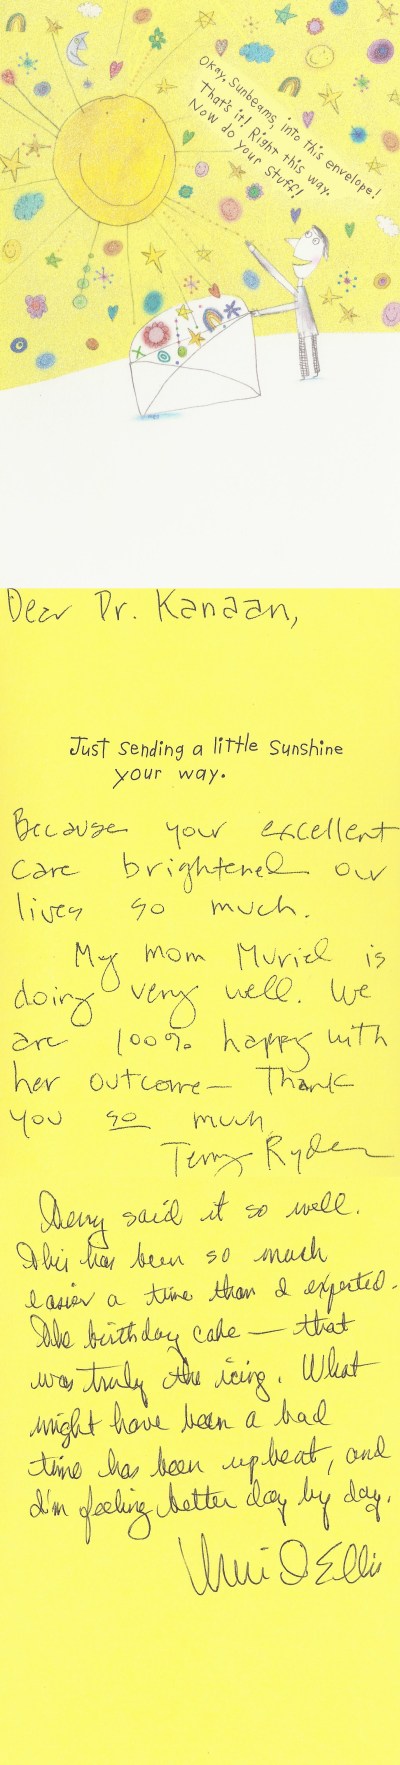 Okay, Sunbeams, into this envelope!
That's it! Right this way.
Now do your stuff!
Dear Dr. Kanaan,
Just sending a little sunshine
your way.
Because your excellent
care brightened our
lives so much.
My mom Muriel is
doing very well. We
are 100% happy with
her outcome— Thank
you so much
Terry Ryder
Terry said it so well.
This has been so much
easier a time than I expected.
The birthday cake — that
was truly the icing. What
might have been a bad
time has been upbeat, and
I'm feeling better day by day.
Muriel Ellis